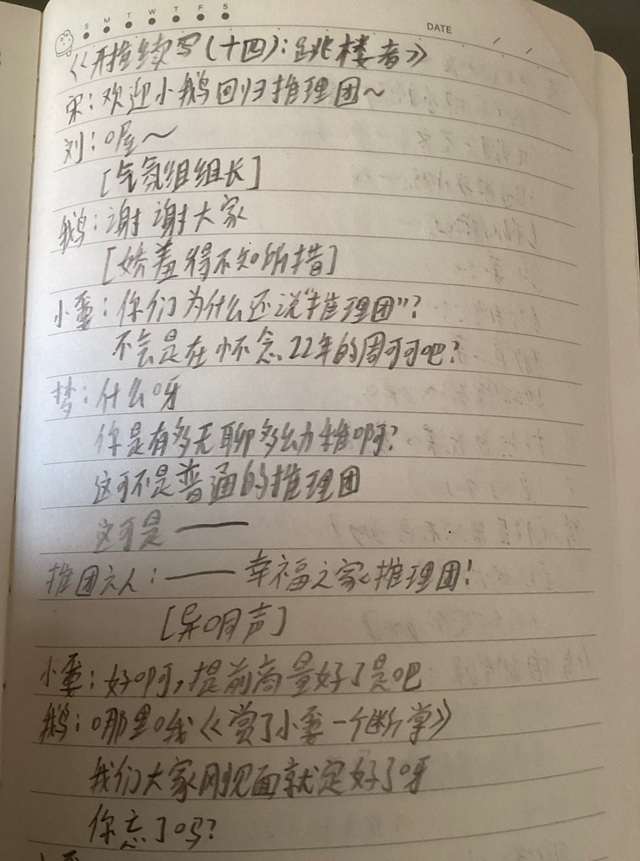 S M T W T F S
DATE / /
《推续写(十四):跳楼者》
宋:欢迎小鹅回归推理团~
刘:喔~
[气氛组组长]
鹅:谢谢大家
[娇羞得不知所措]
小霎:你们为什么还说"推理团"?
不会是在怀念22年的周可可吧?
梦:什么呀
你是有多无聊多幼稚啊?
这可不是普通的推理团
这可是——
推团六人:——幸福之家推理团!
[异口同声]
小霎:好啊,提前商量好了是吧
鹅:哪里哦《赏了小霎一个断掌》
我们大家刚见面就定好了呀
你忘了吗?